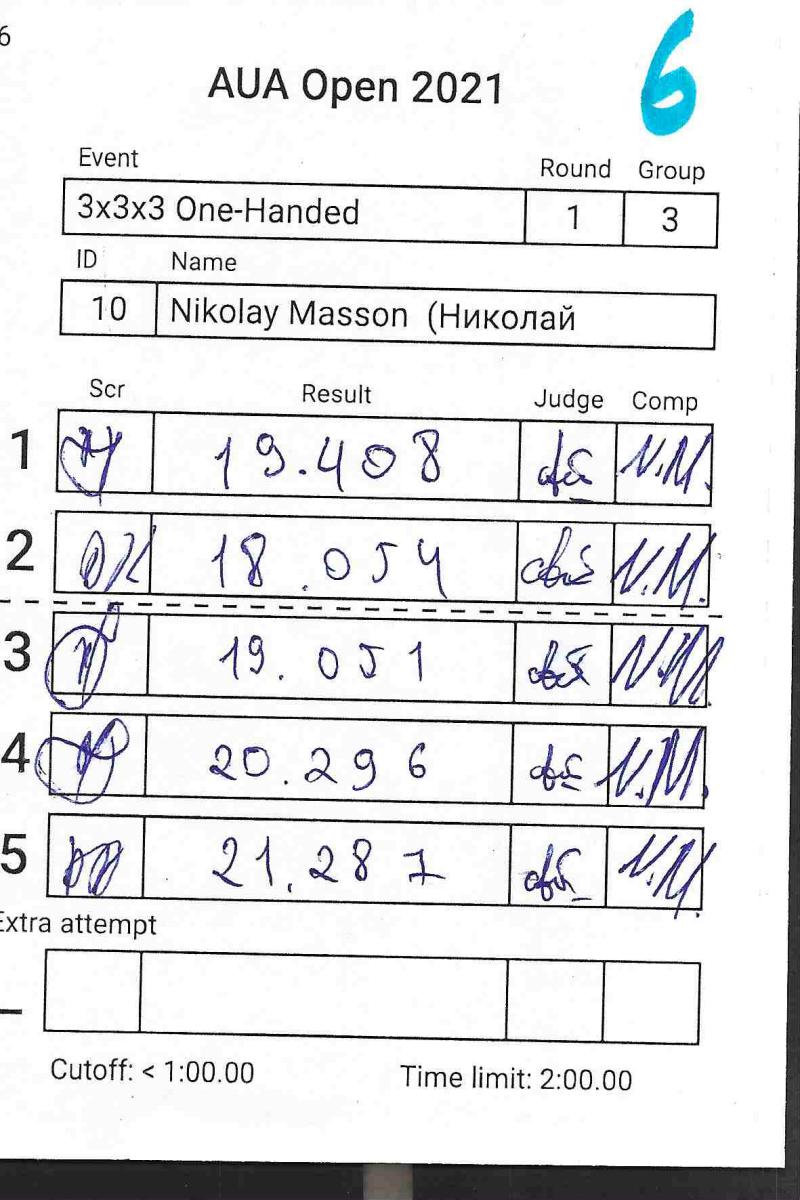 6
6
AUA Open 2021
Event Round Group
3x3x3 One-Handed 1 3
ID Name
10 Nikolay Masson (Николай
Scr Result Judge Comp
1 19.408 N.M.
2 18.054 N.M.
3 19.051 N.M.
4 20.296 N.M.
5 21.287 N.M.
Extra attempt
Cutoff: < 1:00.00 Time limit: 2:00.00